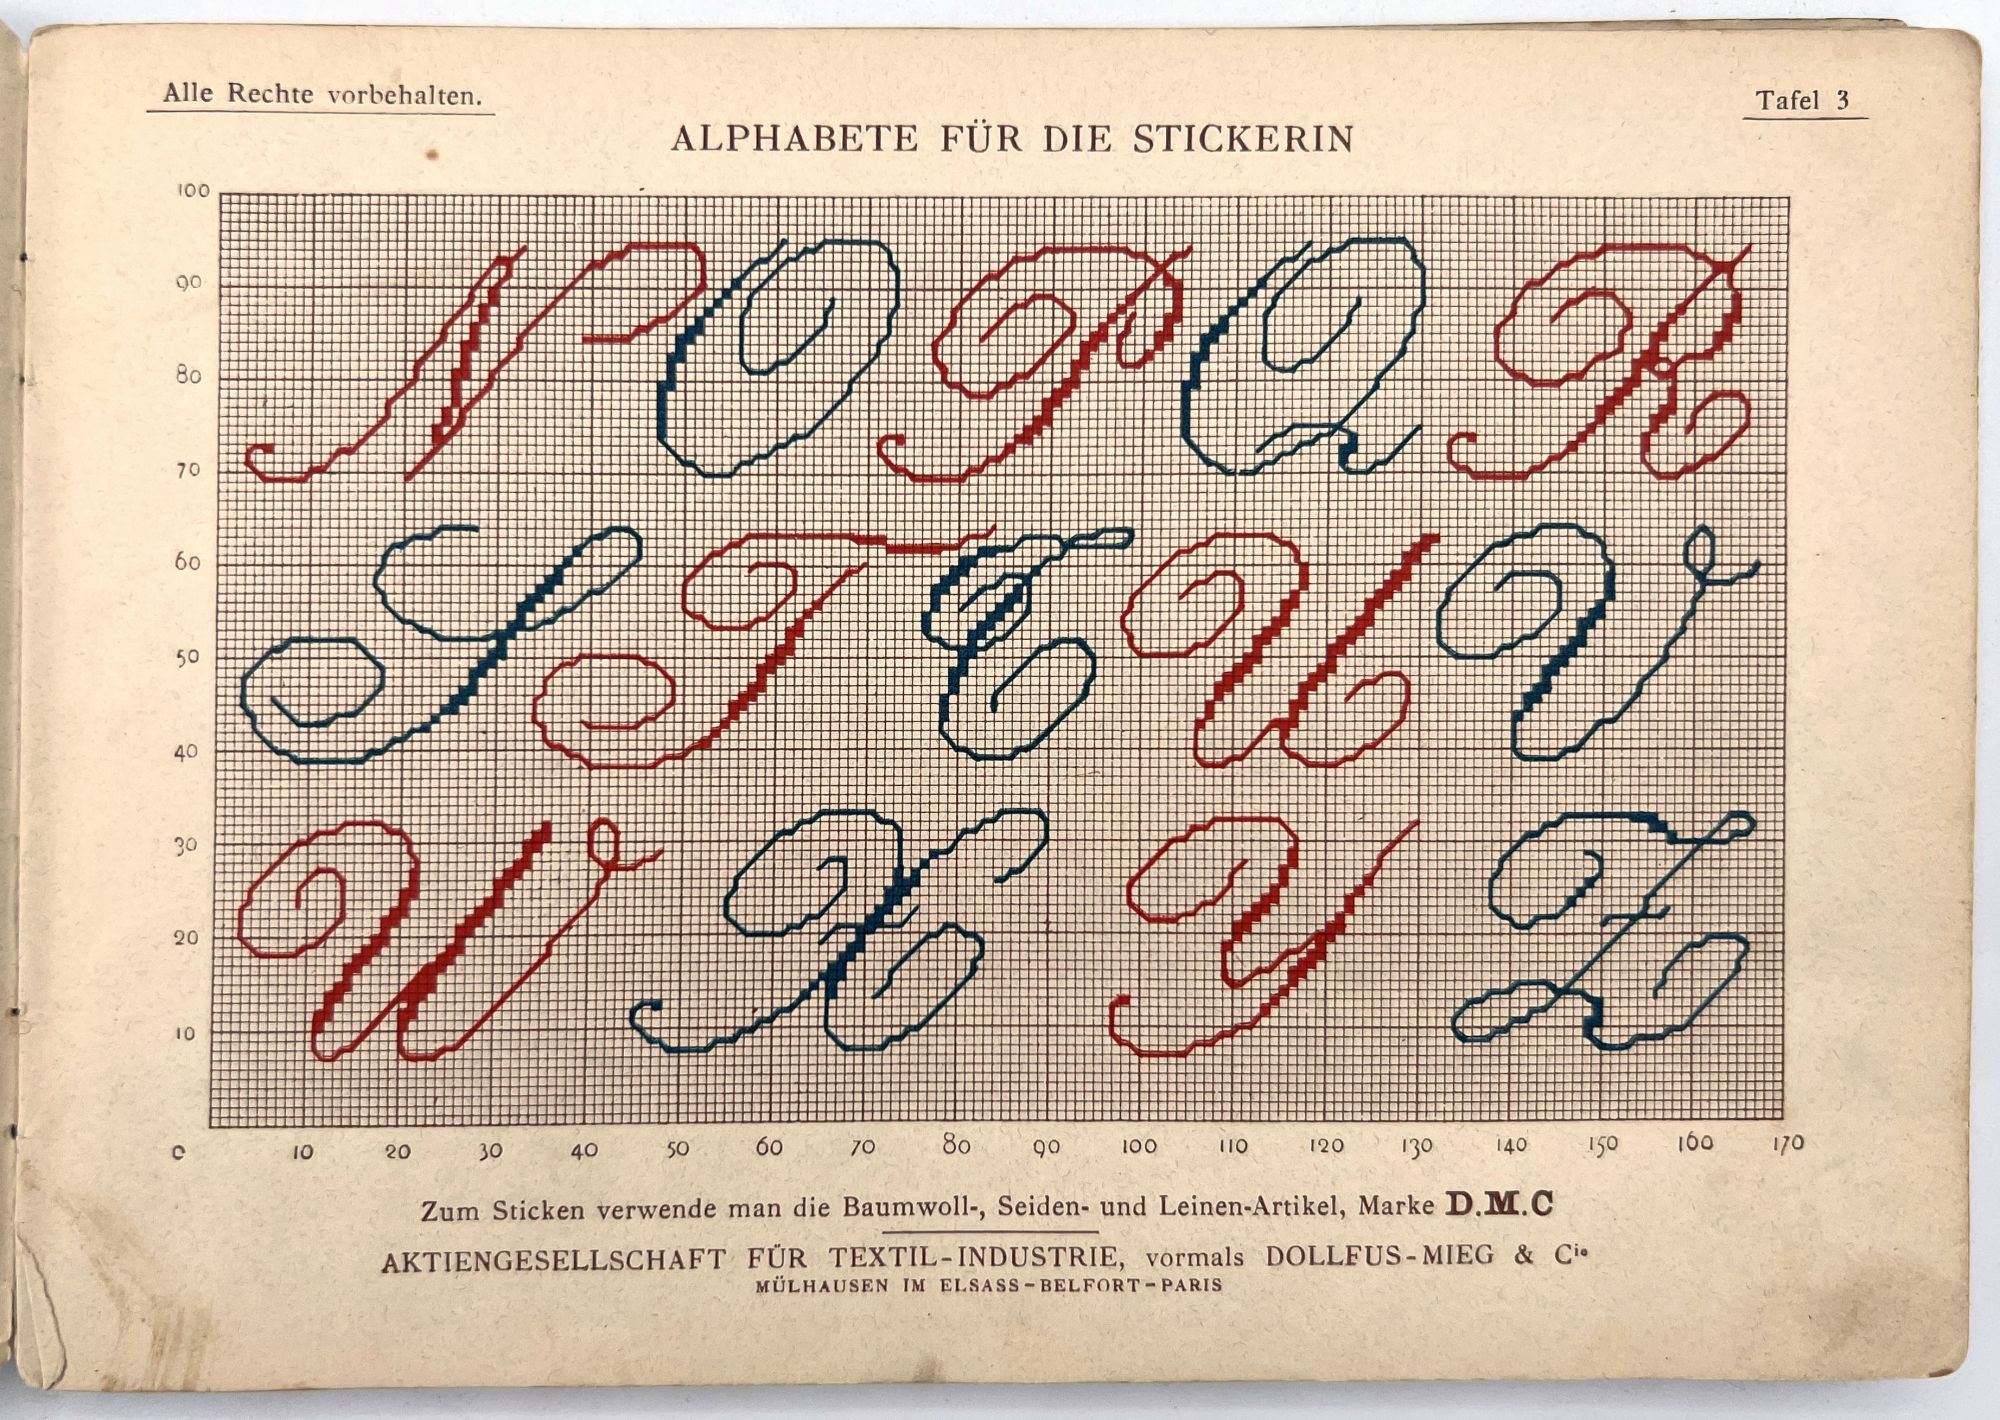 Alle Rechte vorbehalten.
Tafel 3
ALPHABETE FÜR DIE STICKERIN
100
90
80
70
60
50
40
30
20
10
N O P Q R
S T S U V
W X Y Z
0 10 20 30 40 50 60 70 80 90 100 110 120 130 140 150 160 170
Zum Sticken verwende man die Baumwoll-, Seiden- und Leinen-Artikel, Marke D.M.C
AKTIENGESELLSCHAFT FÜR TEXTIL-INDUSTRIE, vormals DOLLFUS-MIEG & Cie
MÜLHAUSEN IM ELSASS-BELFORT-PARIS